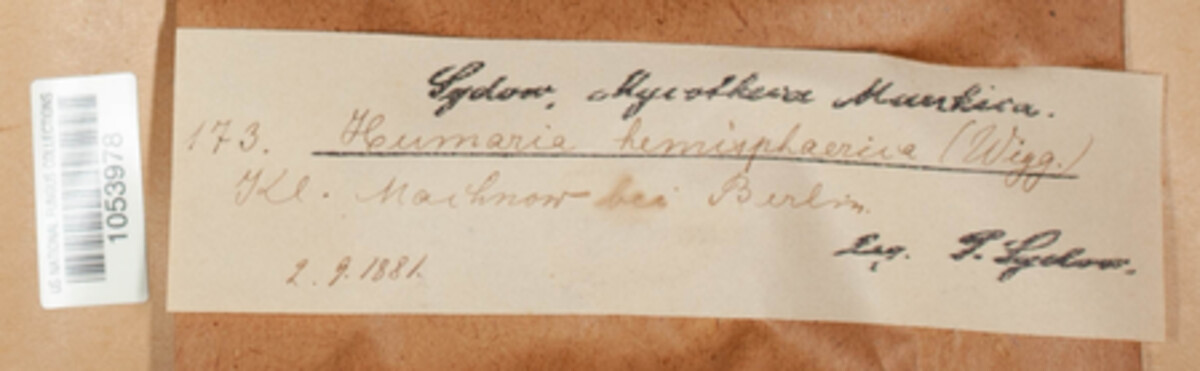 Sydow, Mycotheca Marchica.
173. Humaria hemisphaerica (Wigg.)
Kl. Machnow bei Berlin.
Leg. P. Sydow.
2. 9. 1881.
US NATIONAL FUNGUS COLLECTIONS
1053978